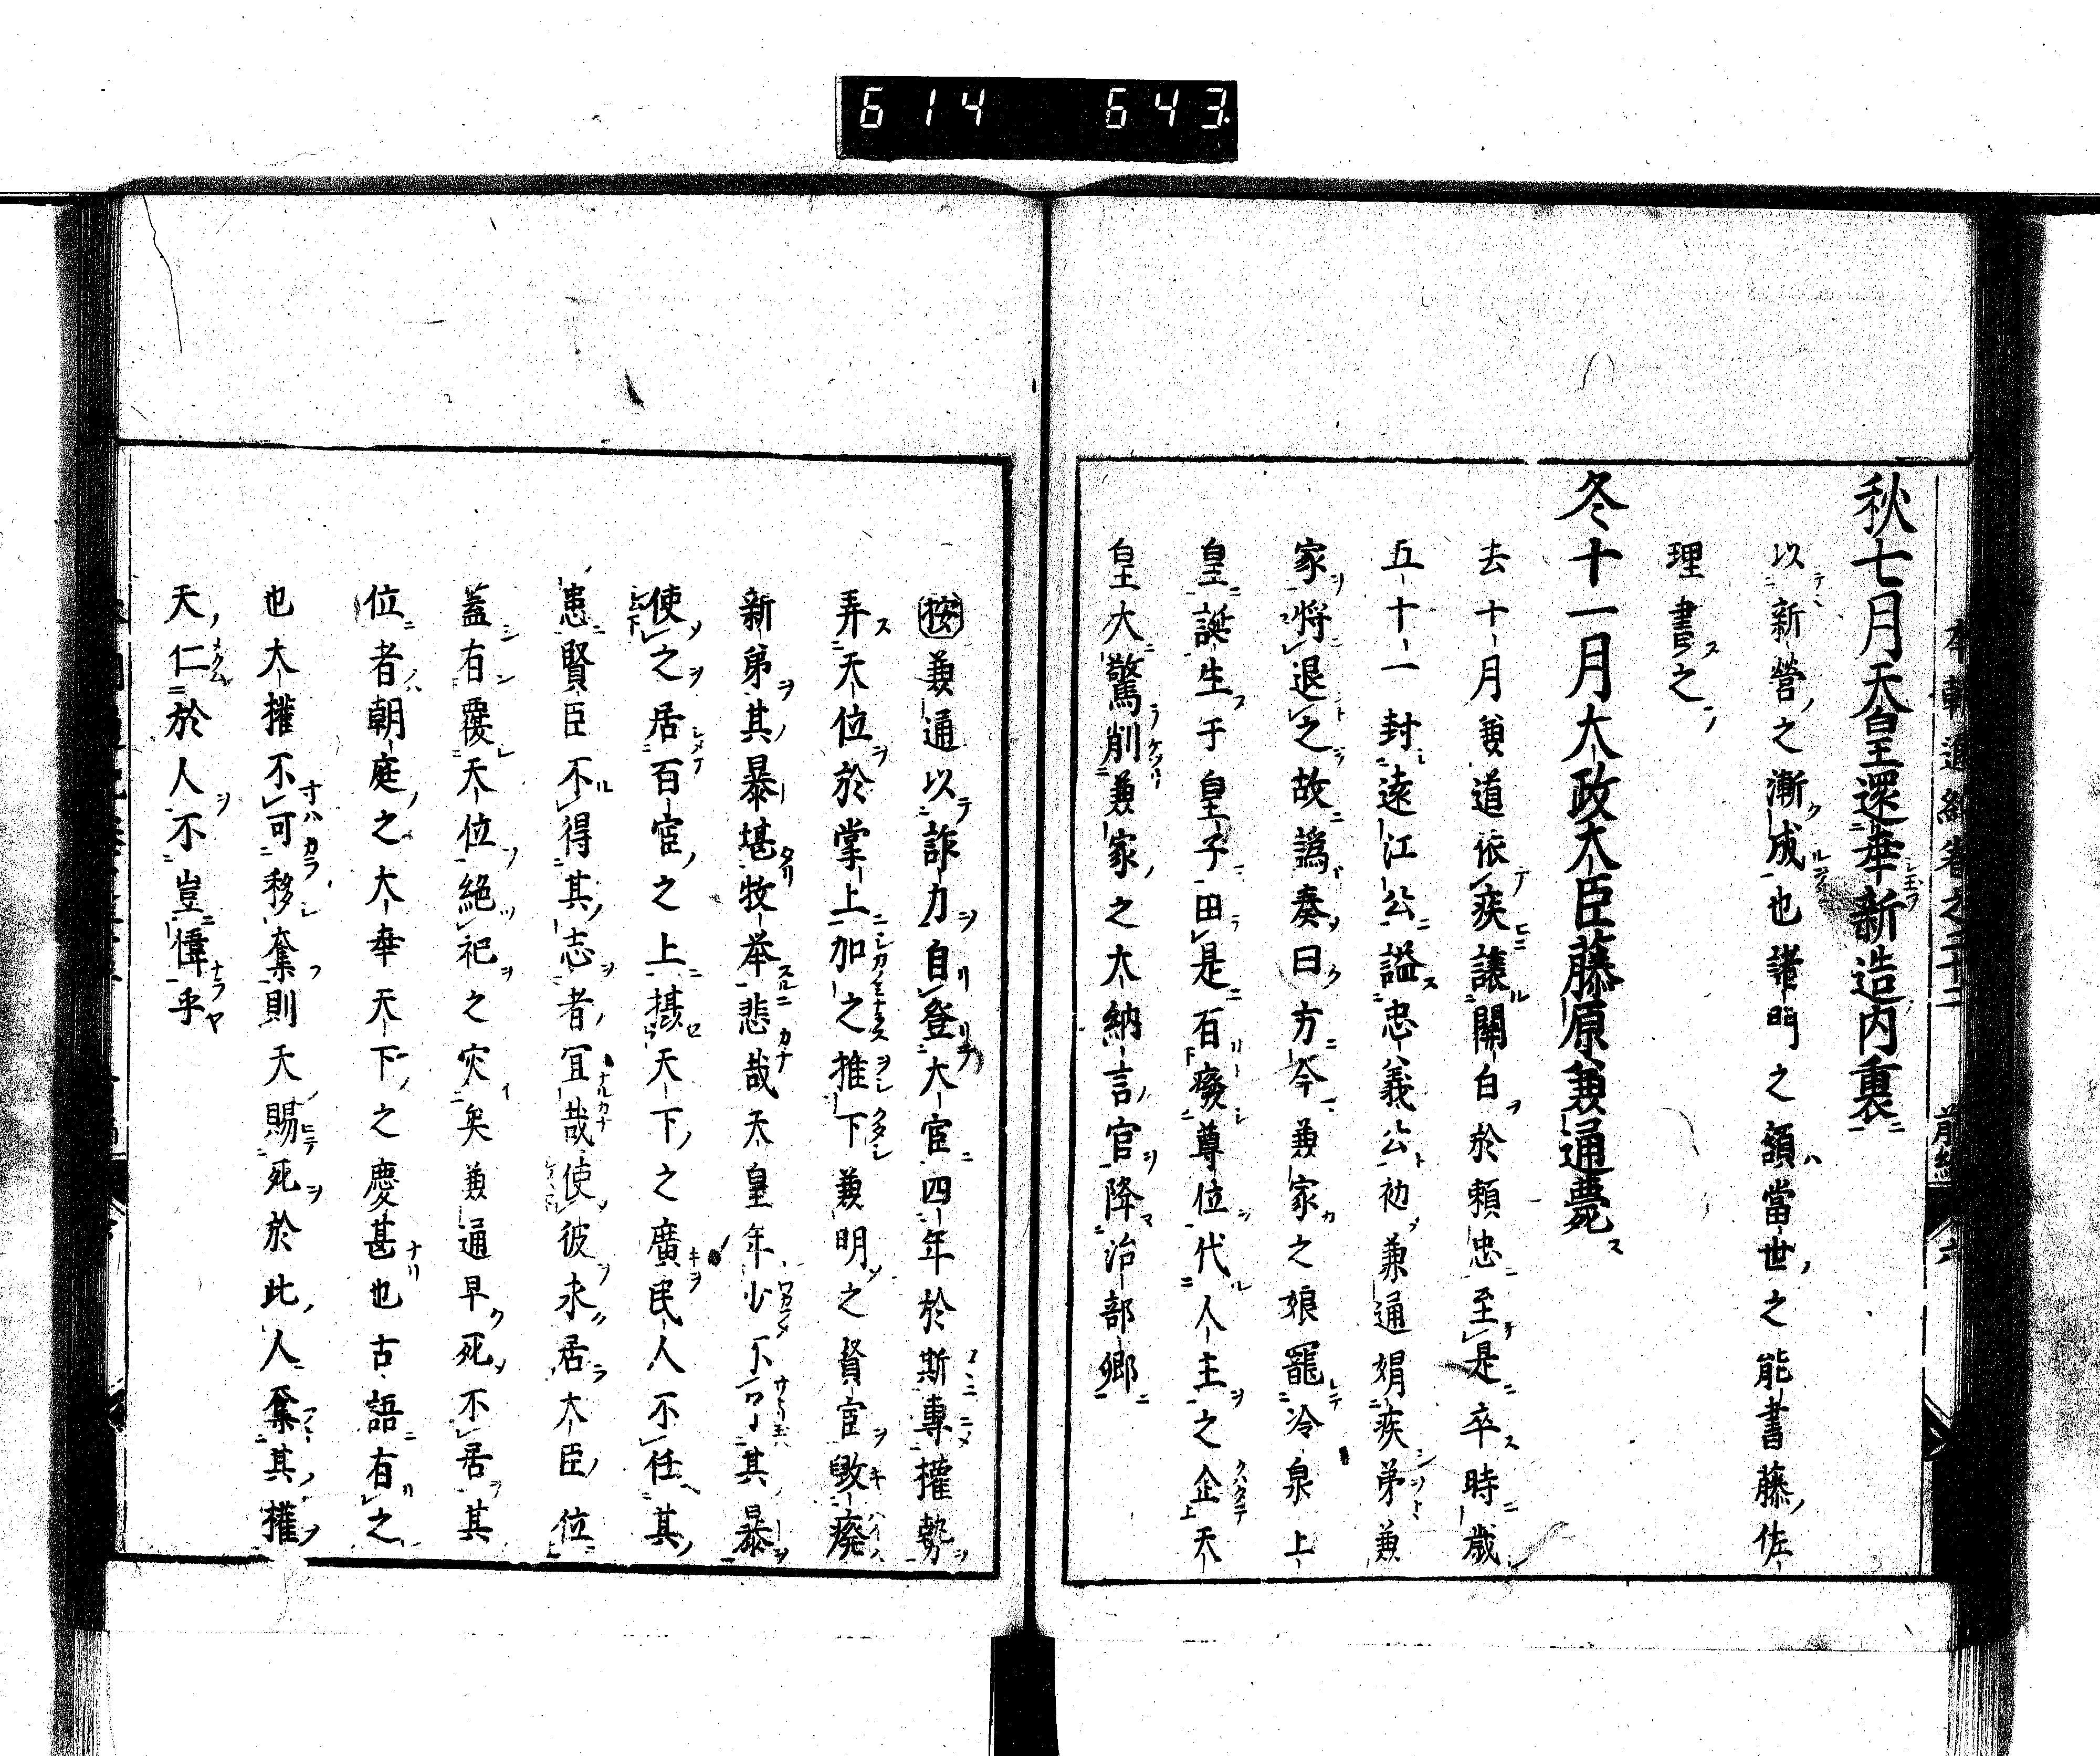 614 643
秋七月天皇還幸新造内裏
以新營之漸成也諸門之額當世之能書藤佐
理書之
冬十一月太政大臣藤原兼通薨
去十月兼道依疾讓關白於賴忠至是卒時歳
五十一封遠江公謚忠義公初兼通娟疾弟兼
家將退之故譌奏曰方今兼家之娘寵冷泉上
皇誕生于皇子田是百癈尊位代人主之企天
皇大驚削兼家之大納言官降治部卿
按兼通以詐力自登大官四年於斯專權勢
弄天位於掌上加之推下兼明之賢官毀廢
新弟其暴堪牧举悲哉天皇年少不了其暴
使之居百官之上摂天下之廣民人不任其
患賢臣不得其志者宜哉使彼永居大臣位
蓋有覆天位絶祀之灾矣兼通早死不居其
位者朝庭之大幸天下之慶甚也古語有之
也大權不可移奪則天賜死於此人奪其權
天仁於人不豈偉乎